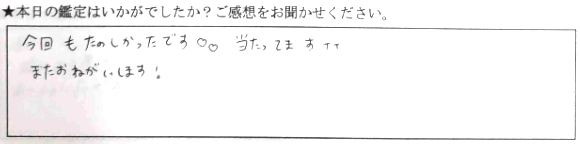 ★本日の鑑定はいかがでしたか？ご感想をお聞かせください。
今回もたのしかったです♡♡ 当たってます ТТ
またおねがいします！